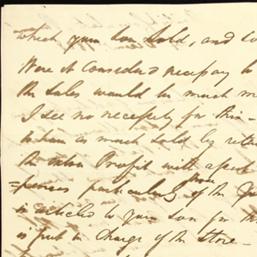 which your Son Sold, and co
Were it Considered necessary to
the Sales would be much m
I see no necessity for this -
when as much Sold by reta
the Profit will
particularly of the
in articles to your Son for th
is put in Charge of the Store -